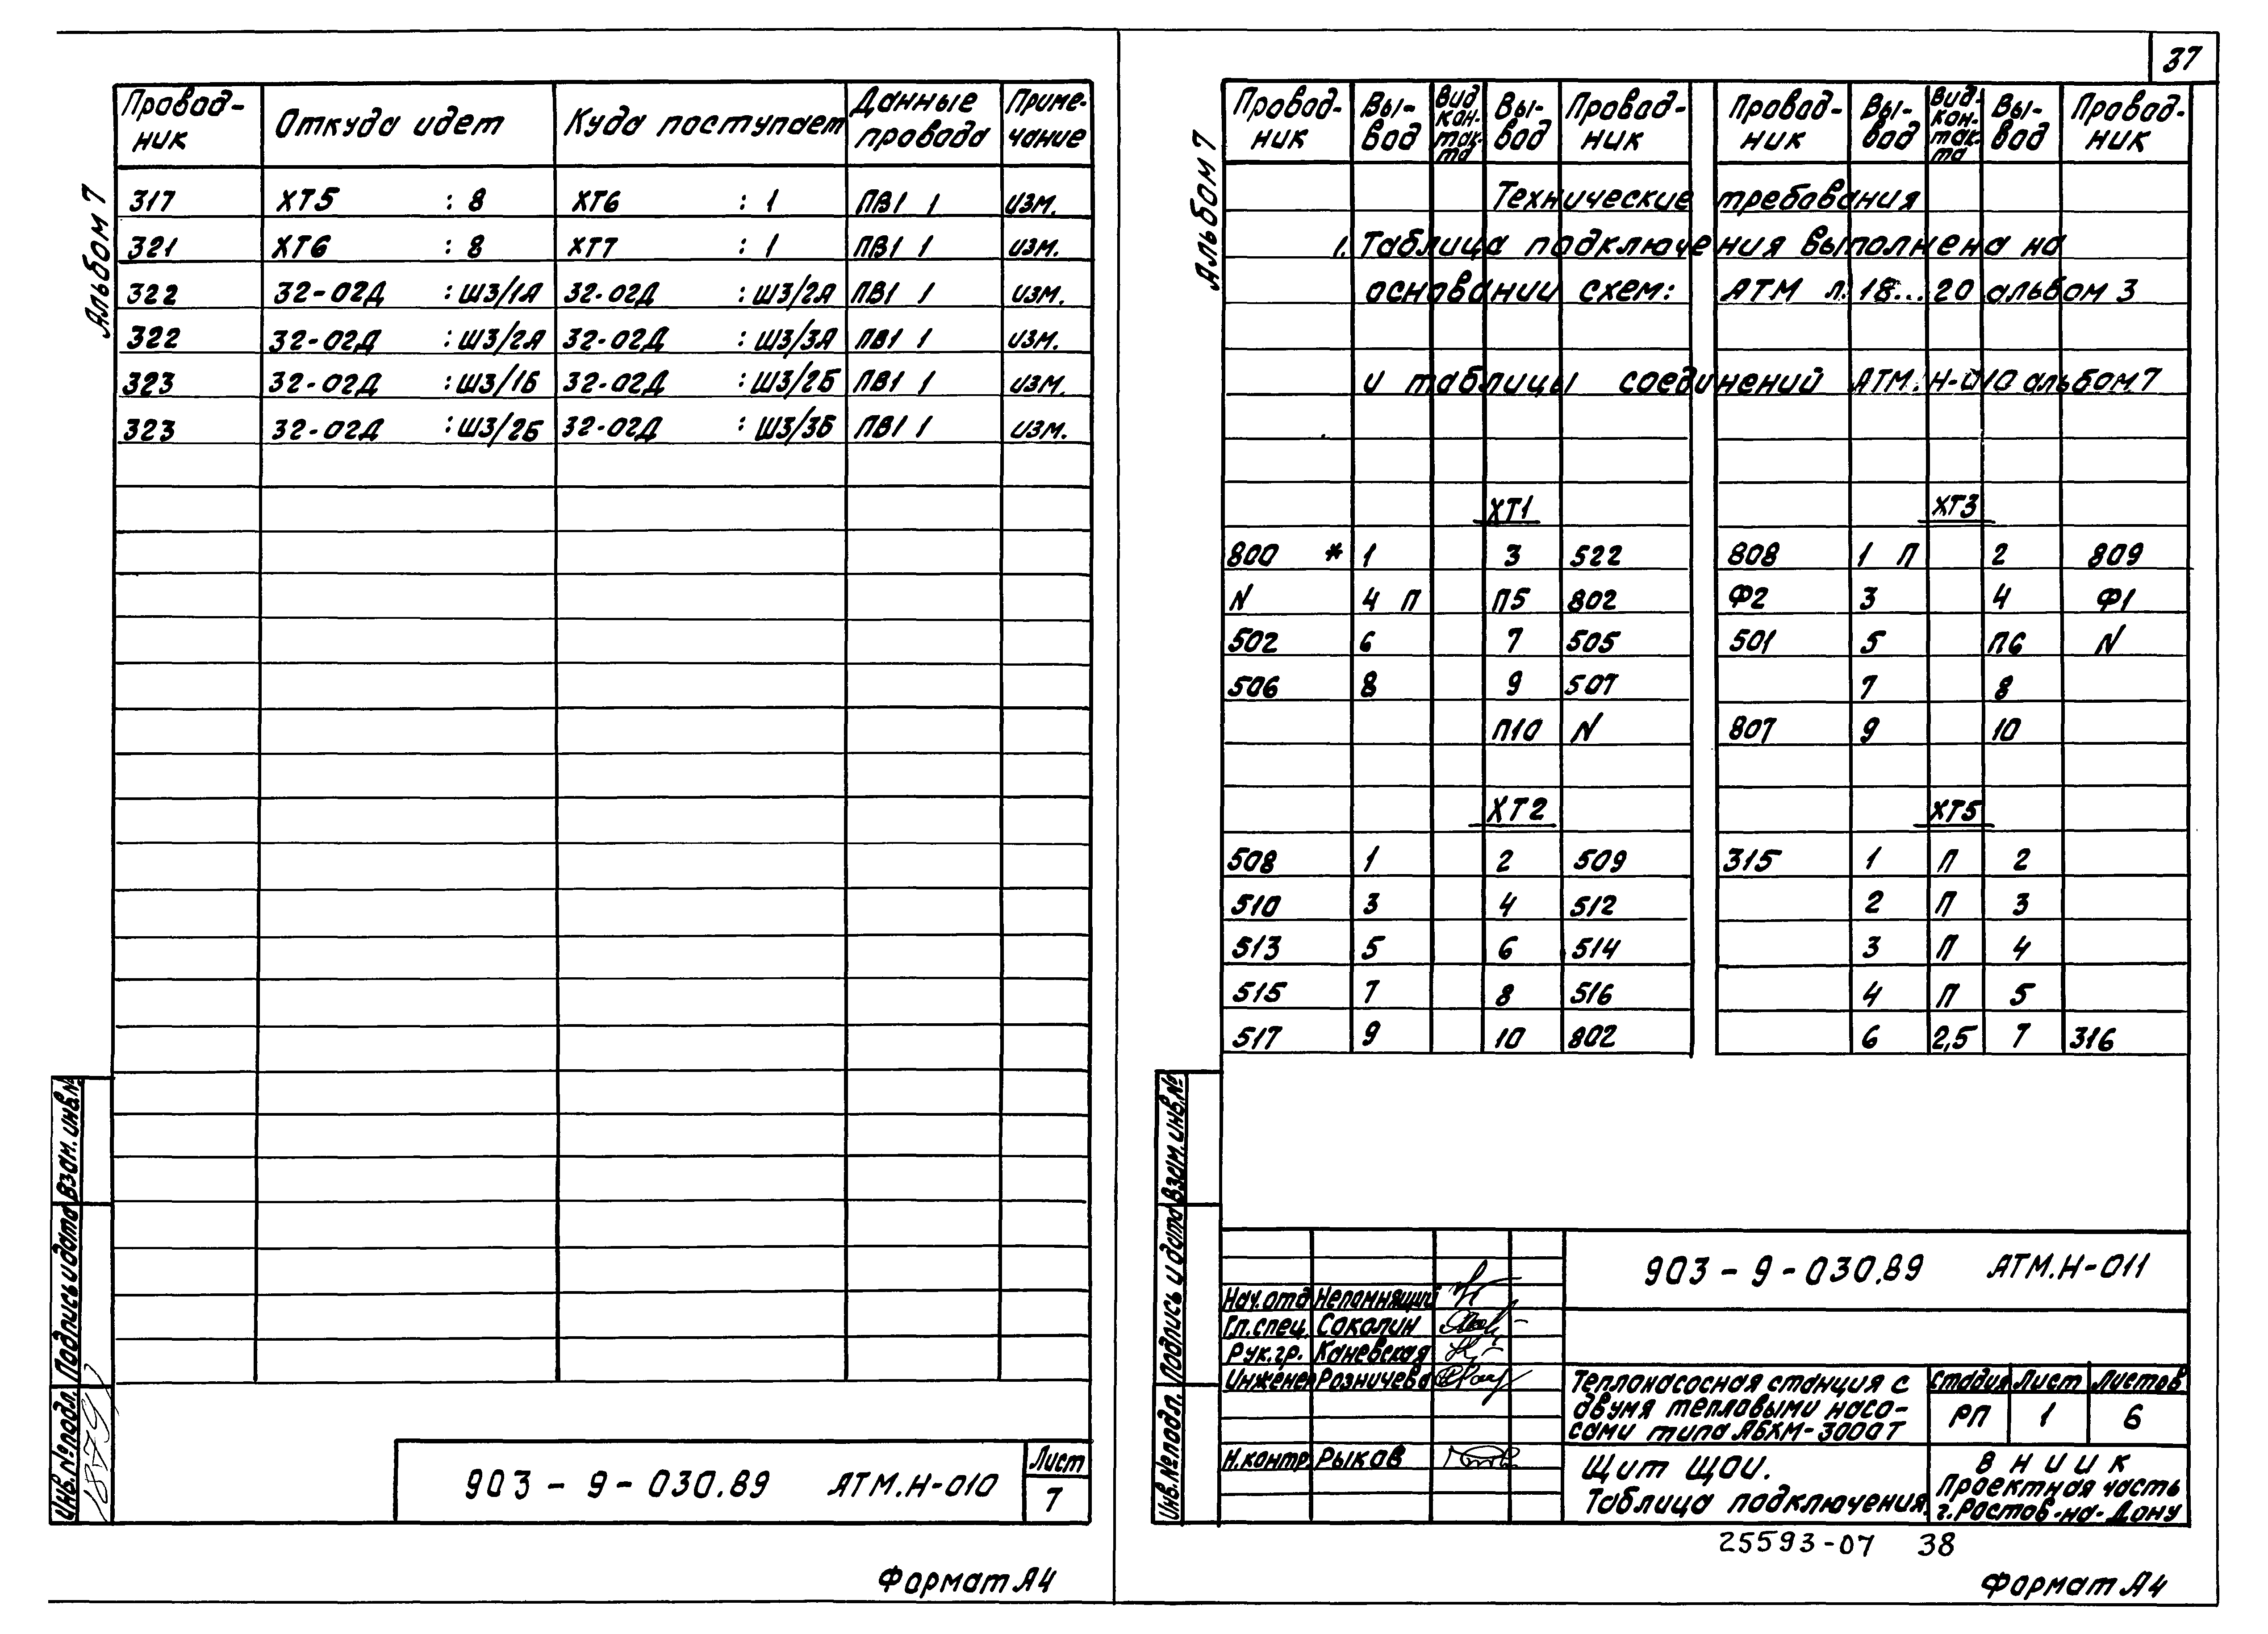 37
Альбом 7
Провод- Откуда идет Куда поступает Данные Приме-
ник провода чание
317 ХТ5 : 8 ХТ6 : 1 ПВ1 1 изм.
321 ХТ6 : 8 ХТ7 : 1 ПВ1 1 изм.
322 32-02Д : Ш3/1А 32-02Д : Ш3/2А ПВ1 1 изм.
322 32-02Д : Ш3/2А 32-02Д : Ш3/3А ПВ1 1 изм.
323 32-02Д : Ш3/1Б 32-02Д : Ш3/2Б ПВ1 1 изм.
323 32-02Д : Ш3/2Б 32-02Д : Ш3/3Б ПВ1 1 изм.
Взам. инв.№
Подпись и дата
Инв.№ подл.
18795
903-9-030.89 АТМ.Н-010
Лист
7
Формат А4
Альбом 7
Провод- Вы- Вид Вы- Провод- Провод- Вы- Вид- Вы- Провод-
ник вод кон- вод ник ник вод кон- вод ник
так- так-
та та
Технические требования
1. Таблица подключения выполнена на
основании схем: АТМ л. 18...20 альбом 3
и таблицы соединений АТМ.Н-010 альбом 7
ХТ1 ХТ3
800 * 1 3 522 808 1 П 2 809
N 4 П П5 802 Ф2 3 4 Ф1
502 6 7 505 501 5 П6 N
506 8 9 507 7 8
П10 N 807 9 10
ХТ2 ХТ5
508 1 2 509 315 1 П 2
510 3 4 512 2 П 3
513 5 6 514 3 П 4
515 7 8 516 4 П 5
517 9 10 802 6 2,5 7 316
Взам.инв.№
Подпись и дата
Инв.№ подл.
903-9-030.89 АТМ.Н-011
Нач.отд Непомнящий
Гл.спец. Соколин
Рук.гр. Каневская
Инженер Розничева
Н.контр. Рыков
Теплонасосная станция с
двумя тепловыми насо-
сами типа АБХМ-3000Т
Стадия Лист Листов
РП 1 6
Щит ЩОИ.
Таблица подключения.
ВНИИК
Проектная часть
г.Ростов-на-Дону
25593-07 38
Формат А4